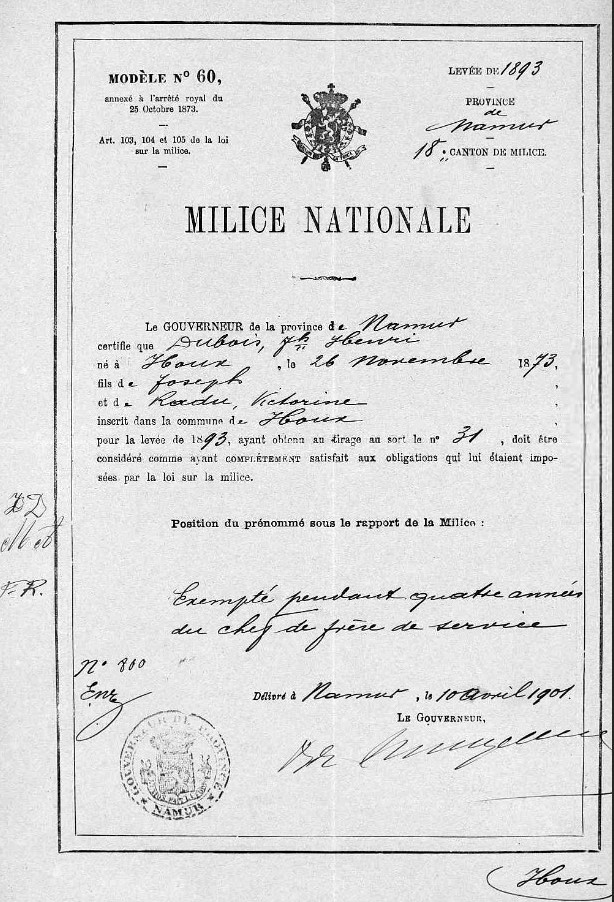 MODÈLE Nº 60,
annexé à l'arrêté royal du
25 Octobre 1873.
Art. 103, 104 et 105 de la loi
sur la milice.
LEVÉE DE 1893
PROVINCE
de
Namur
18e CANTON DE MILICE.
MILICE NATIONALE
Le GOUVERNEUR de la province de Namur
certifie que Dubois, Jh Henri
né à Houx, le 26 Novembre 1873,
fils de Joseph,
et de Radu, Victorine,
inscrit dans la commune de Houx,
pour la levée de 1893, ayant obtenu au tirage au sort le nº 31, doit être
considéré comme ayant COMPLÈTEMENT satisfait aux obligations qui lui étaient impo-
sées par la loi sur la milice.
Position du prénommé sous le rapport de la Milice :
Exempté pendant quatre années
du chef de frère de service
Nº 800
Délivré à Namur, le 10 avril 1901.
LE GOUVERNEUR,
GOUVERNEUR DE PROVINCE
NAMUR
Houx